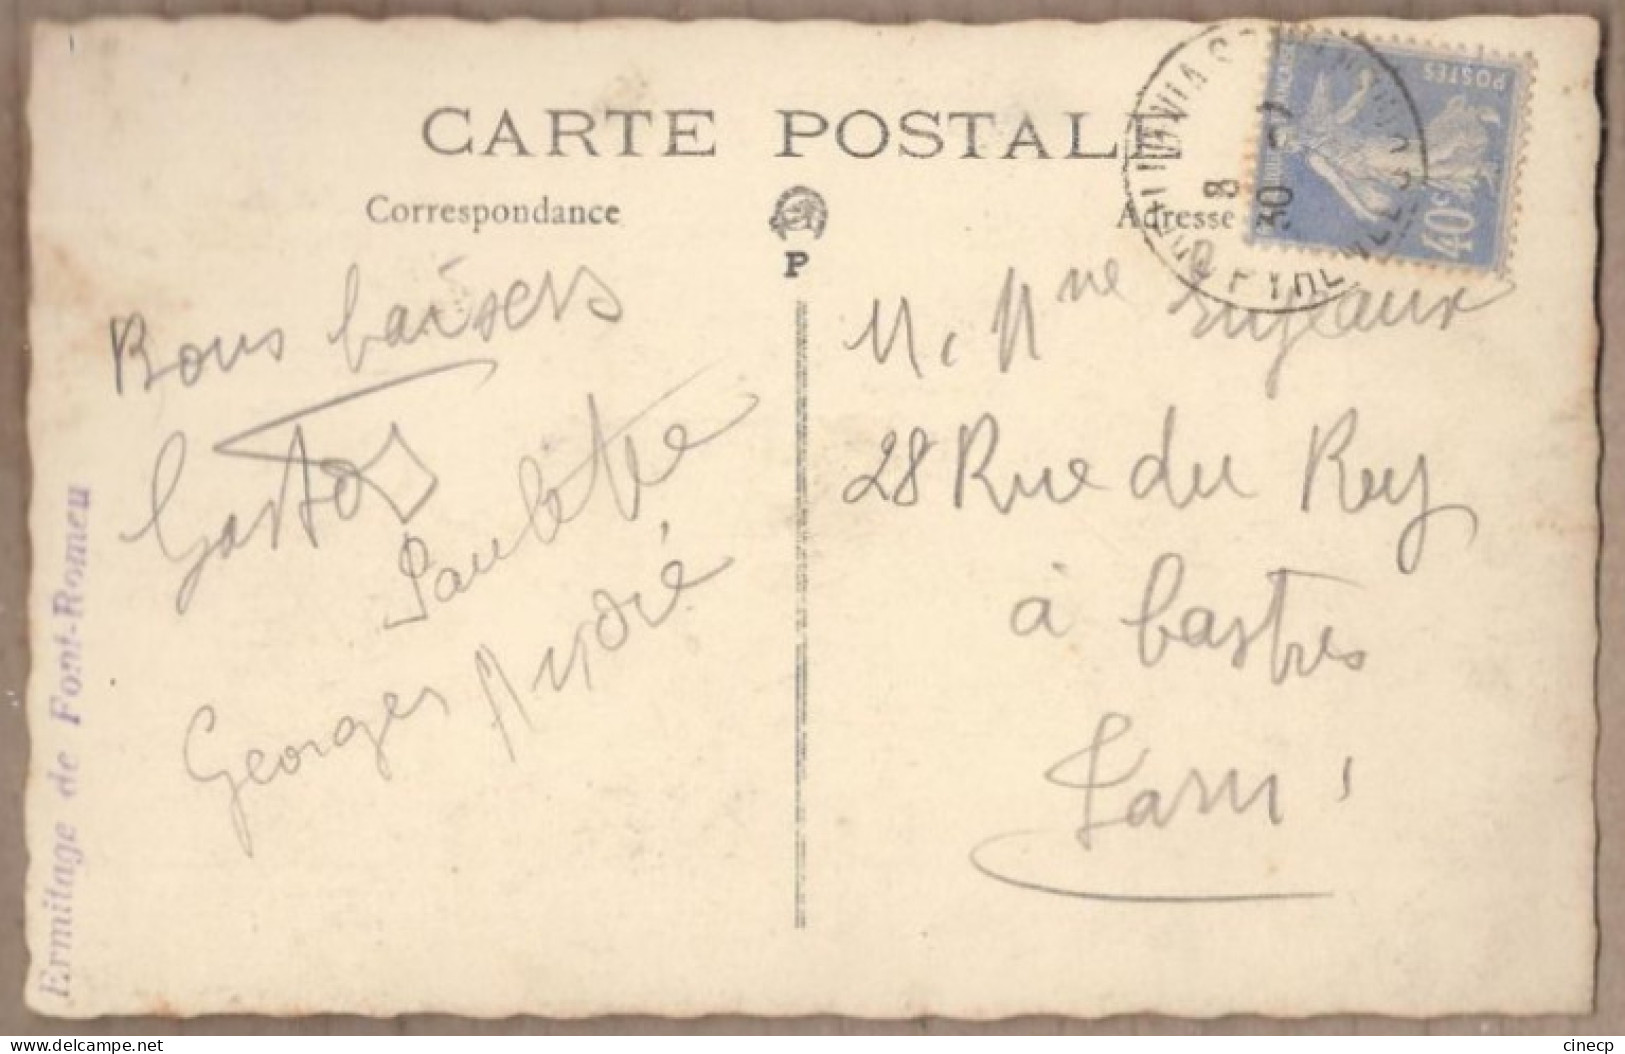 CARTE POSTALE
Correspondance
Adresse
P
POSTES
40c
8
30
Bons baisers
Gaston
Paulette
Georges André
M. Mme Enjeaux
28 Rue du Rey
à Castres
Tarn
Ermitage de Font-Romeu
cinecp